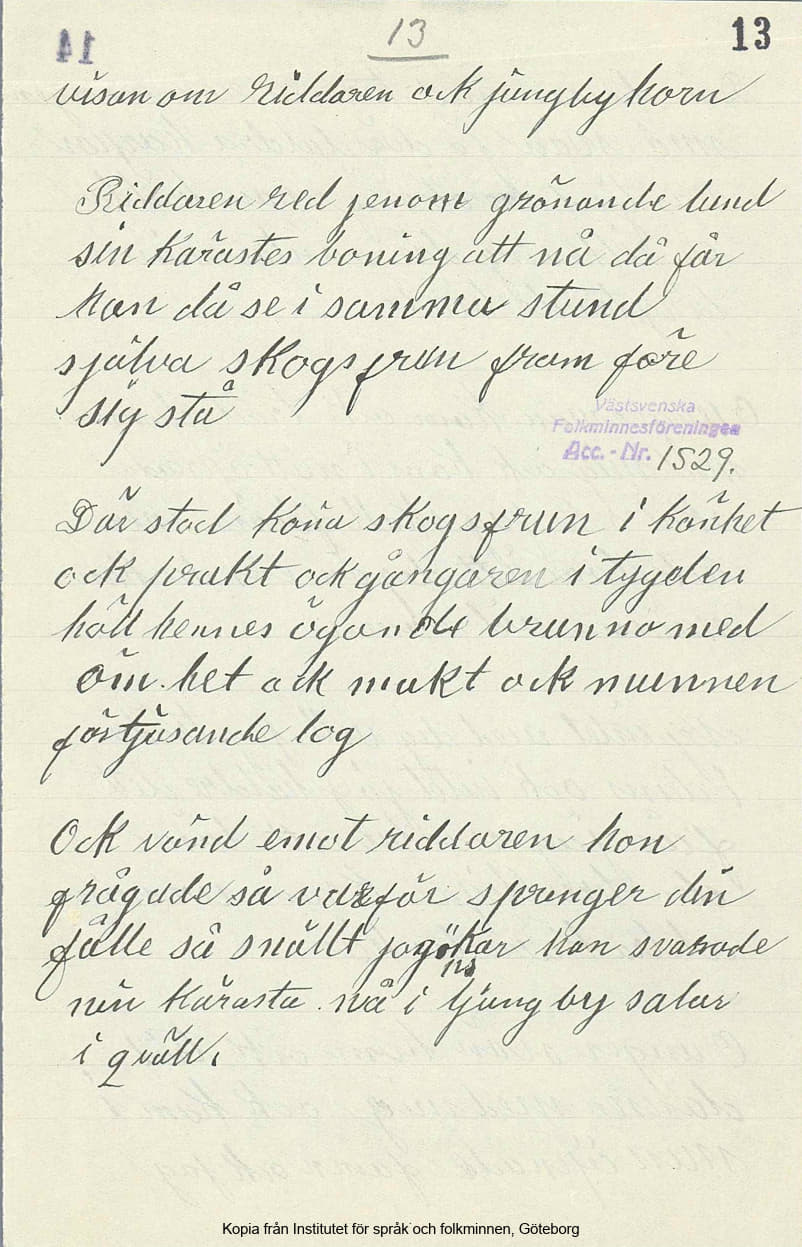 13
13
14
visan om Riddaren ock jungby horn
Riddaren red jenom grönande lund
sin Kärastes boning att nå då får
han då se i samma stund
själva skogsfrun fram före
sig stå
Västsvenska
Folkminnesföreningen
Acc. - Nr. 1529.
Där stod sköna skogsfrun i
ock prakt ock gångaren i tygden
höll hennes ögon de brunno med
öm.het ock makt ock munnen
förtjusande log
Ock vänd emot riddaren hon
frågade så varför springer din
fålle så snällt jag ökar han svarade
min Kärasta nå i ljungby salar
ns
i qväll.
Kopia från Institutet för språk och folkminnen, Göteborg